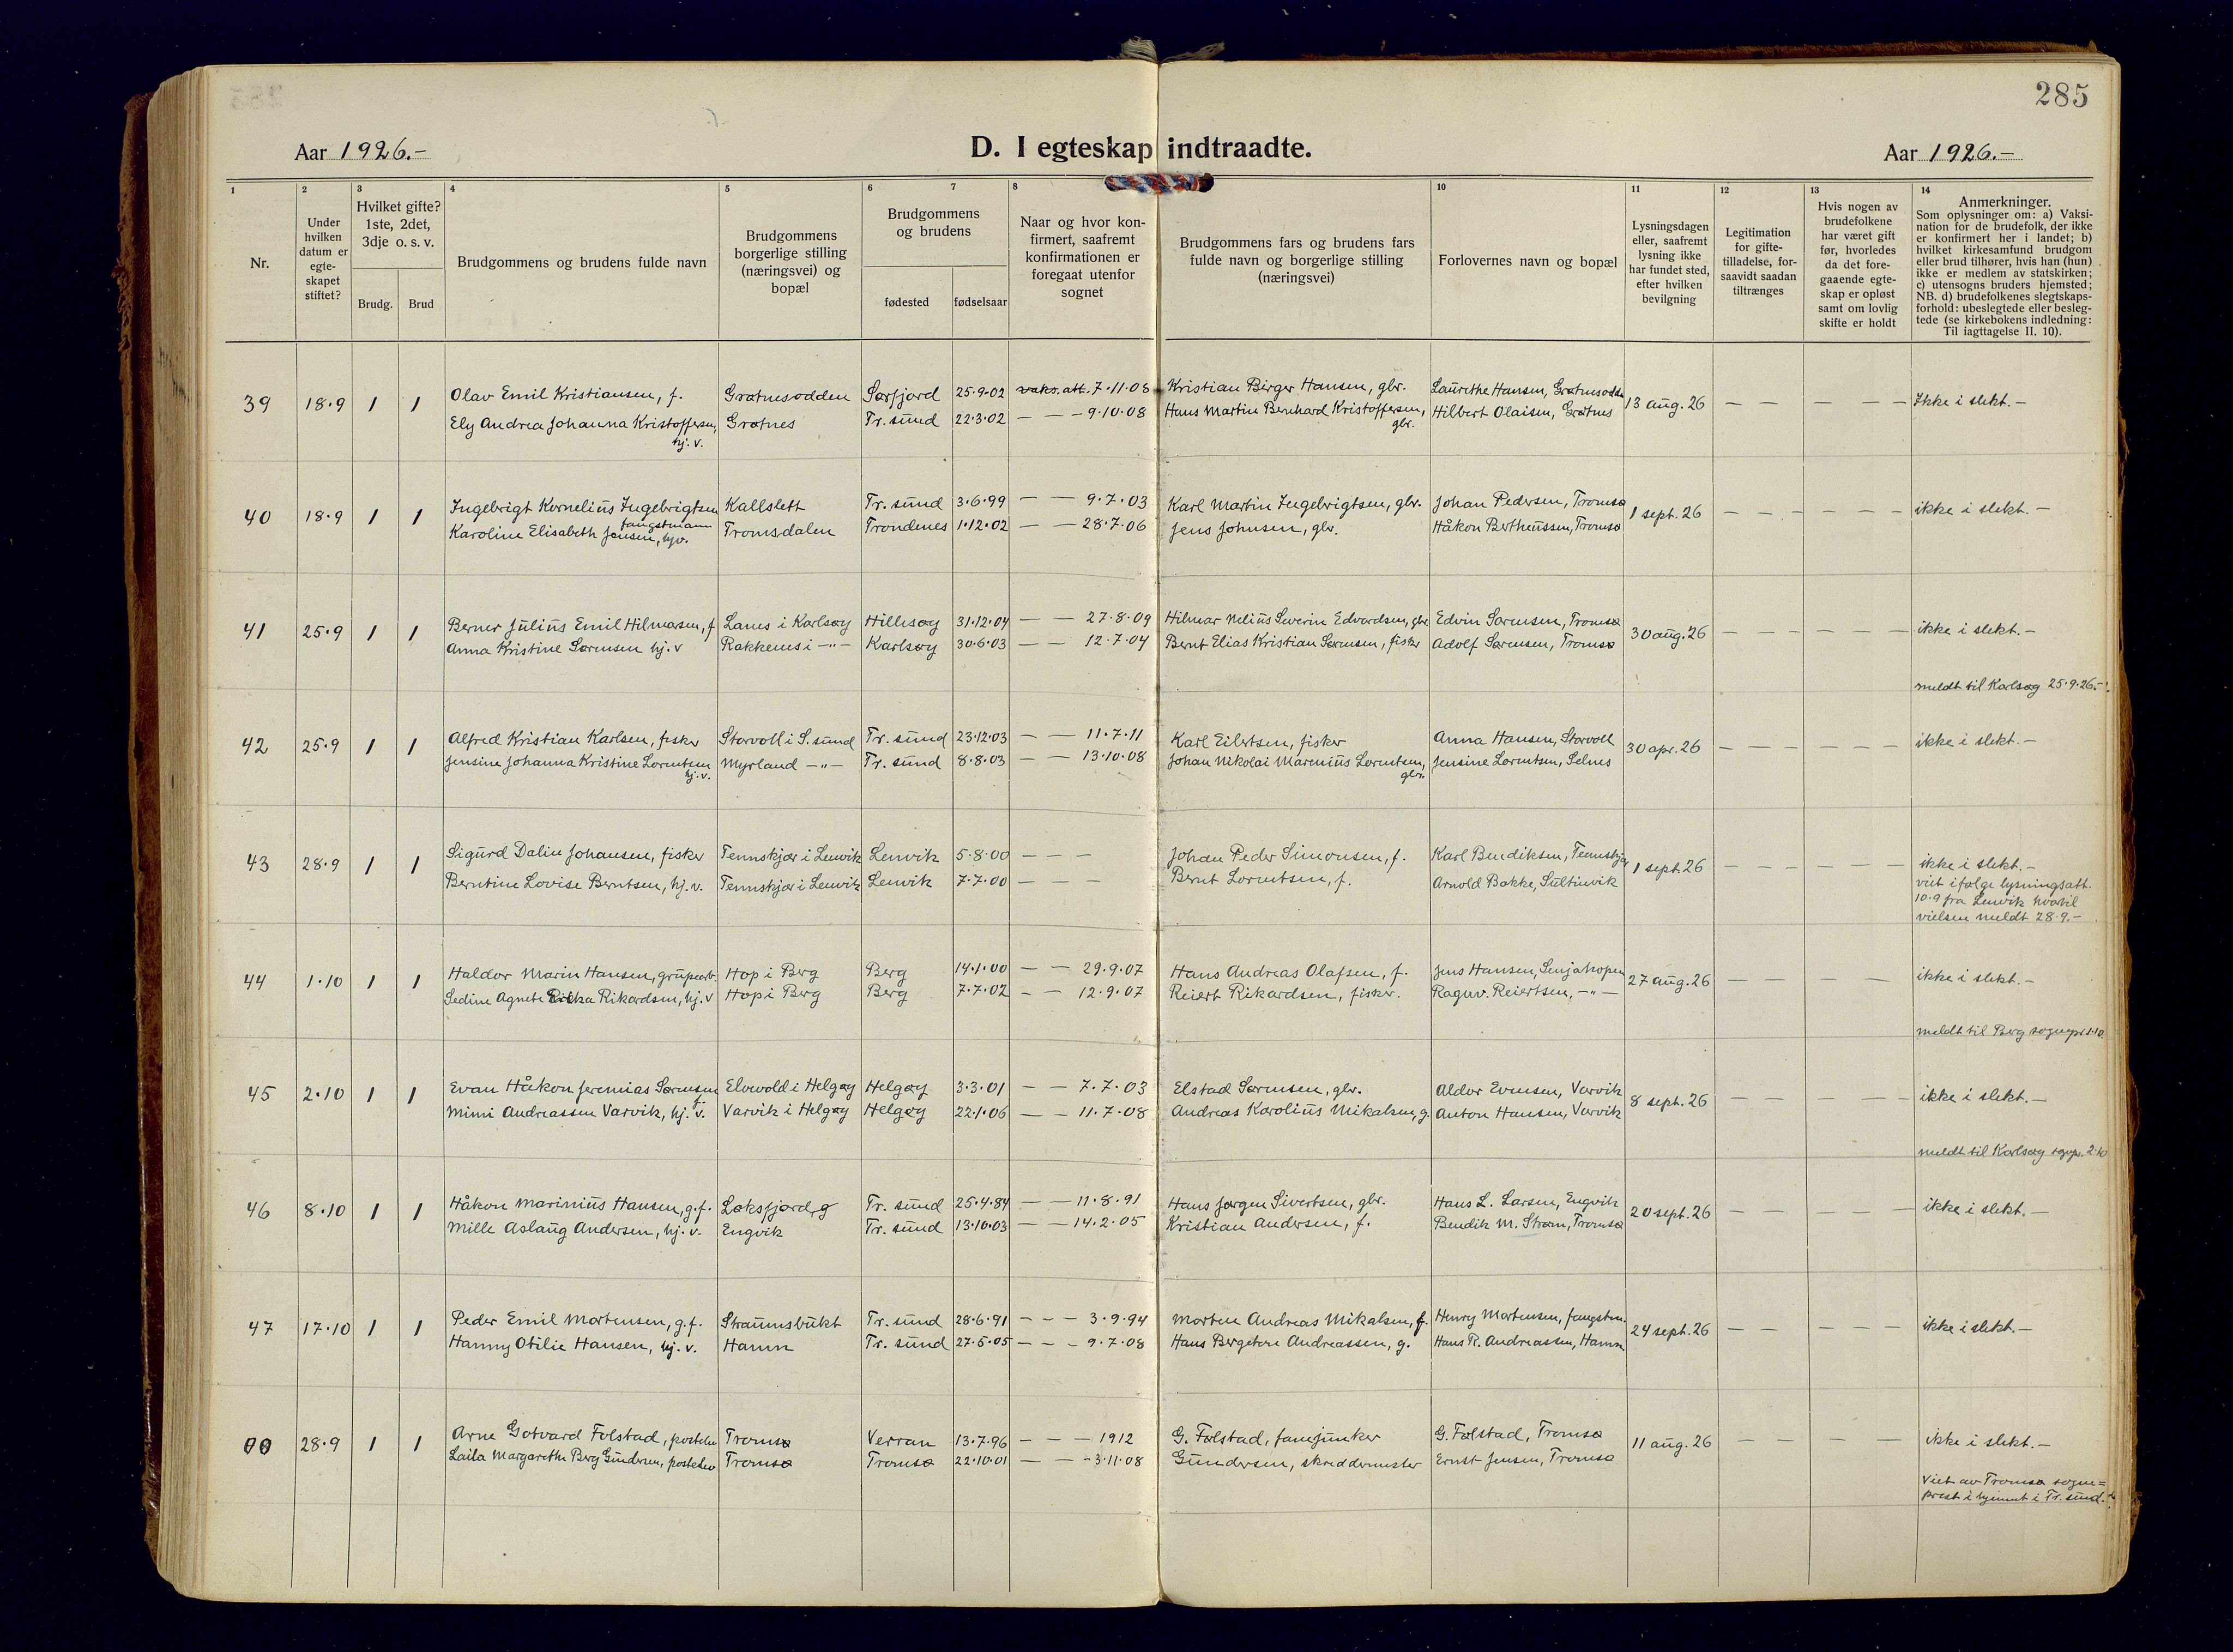 285
Aar 1926.–
D. I egteskap indtraadte.
Aar 1926.–
1 2 3 4 5 6 7 8 10 11 12 13 14
Nr.
Under hvilken datum er egte-skapet stiftet?
Hvilket gifte? 1ste, 2det, 3dje o. s. v.
Brudg. Brud
Brudgommens og brudens fulde navn
Brudgommens borgerlige stilling (næringsvei) og bopæl
Brudgommens og brudens
fødested fødselsaar
Naar og hvor kon-firmert, saafremt konfirmationen er foregaat utenfor sognet
Brudgommens fars og brudens fars fulde navn og borgerlige stilling (næringsvei)
Forlovernes navn og bopæl
Lysningsdagen eller, saafremt lysning ikke har fundet sted, efter hvilken bevilgning
Legitimation for gifte-tilladelse, for-saavidt saadan tiltrænges
Hvis nogen av brudefolkene har været gift før, hvorledes da det fore-gaaende egte-skap er opløst samt om lovlig skifte er holdt
Anmerkninger.
Som oplysninger om: a) Vaksi-nation for de brudefolk, der ikke er konfirmert her i landet; b) hvilket kirkesamfund brudgom eller brud tilhører, hvis han (hun) ikke er medlem av statskirken; c) utensogns bruders hjemsted; NB. d) brudefolkenes slegtskaps-forhold: ubeslegtede eller besleg-tede (se kirkebokens indledning: Til iagttagelse II. 10).
39 18·9 1 1 Olav Emil Kristiansen, f. Grøtnesodden Sørfjord 25·9·02 vaks. att. 7·11·08 Kristian Birger Hansen, gbr. Laurethe Hansen, Grøtnesodden 13 aug. 26 — — — — — Ikke i slekt.–
Ely Andrea Johanna Kristoffersen, hj. v. Grøtnes Tr. sund 22·3·02 — — – 9·10·08 Hans Martin Bernhard Kristoffersen, gbr. Hilbert Olaisen, Grøtnes
40 18·9 1 1 Ingebrigt Kornelius Ingebrigtsen fangstmann Kallslett Tr. sund 3·6·99 — — 9·7·03 Karl Martin Ingebrigtsen, gbr. Johan Pedersen, Tromsø 1 sept. 26 — — — — — — ikke i slekt.–
Karoline Elisabeth Jensen, hjv. Tromsdalen Trondenes 1·12·02 — — 28·7·06 Jens Johnsen, gbr. Håkon Bertheussen, Tromsø
41 25·9 1 1 Berner Julius Emil Hilmarsen, f Lanes i Karlsøy Hillesøy 31·12·04 — — 27·8·09 Hilmar Nelius Severin Edvardsen, gbr Edvin Sørensen, Tromsø 30 aug. 26 — — — — — — ikke i slekt.–
Anna Kristine Sørensen hj. v Rakkenes i –"– Karlsøy 30·6·03 — — 12·7·04 Bernt Elias Kristian Sørensen, fisker Adolf Sørensen, Tromsø
meldt til Karlsøy 25·9·26.–
42 25·9 1 1 Alfred Kristian Karlsen, fisker Storvoll i S. sund Tr. sund 23·12·03 — — 11·7·11 Karl Eilertsen, fisker Anna Hansen, Storvoll 30 apr. 26 — — — — — — ikke i slekt.–
Jensine Johanna Kristine Lorentsen hj. v. Myrland –"– Tr. sund 8·8·03 — — 13·10·08 Johan Nikolai Marenius Lorentsen, gbr. Jensine Lorentsen, Selnes
43 28·9 1 1 Sigurd Dalin Johansen, fisker Tennskjær i Lenvik Lenvik 5·8·00 — — — Johan Peder Simonsen, f. Karl Bendiksen, Tennskjær 1 sept. 26 — — — — — ikke i slekt.–
Berntine Lovise Berntsen, hj. v. Tennskjær i Lenvik Lenvik 7·7·00 — — — Bernt Lorentsen, f. Arnold Bakke, Sultinvik
viet ifølge lysningsatt.
10·9 fra Lenvik hvortil
vielsen meldt 28·9.–
44 1·10 1 1 Haldor Marin Hansen, grubearb. Hop i Berg Berg 14·1·00 — — 29·9·07 Hans Andreas Olafsen, f. Jens Hansen, Senjahopen 27 aug. 26 — — — — ikke i slekt.–
Sedine Agnete Rikardsen, hj. v Hop i Berg Berg 7·7·02 – — 12·9·07 Reiert Rikardsen, fisker. Ragnv. Reiertsen, –"–
meldt til Berg sognepr 1·10.
45 2·10 1 1 Evan Håkon Jeremias Sørensen f. Elvevold i Helgøy Helgøy 3·3·01 — — 7·7·03 Elstad Sørensen, gbr. Aldor Evensen, Vorvik 8 sept. 26 — — — — — ikke i slekt.–
Mimi Andreassen Varvik, hj. v. Varvik i Helgøy Helgøy 22·1·06 — — 11·7·08 Andreas Karolius Mikalsen, g. Anton Hansen, Vorvik
meldt til Karlsøy sognpr. 2·10
46 8·10 1 1 Håkon Marinius Hansen, g. f. Laksfjord, g Tr. sund 25·4·84 — — 11·8·91 Hans Jørgen Sivertsen, gbr. Hans L. Larsen, Engvik 20 sept. 26 — — — — — ikke i slekt.–
Mille Aslaug Andersen, hj. v. Engvik Tr. sund 13·10·03 — — 14·2·05 Kristian Andersen, f. Bendik M. Strøm, Tromsø
47 17·10 1 1 Peder Emil Mortensen, g. f. Straumsbukt Tr. sund 28·6·91 – – — 3·9·94 Morten Andreas Mikalsen, f. Henry Mortensen, fangstm. 24 sept. 26 — — — — — ikke i slekt.–
Hanny Otilie Hansen, hj. v. Hamn Tr. sund 27·5·05 — – – 9·7·08 Hans Bergeton Andreassen, g. Hans R. Andreassen, Hamn
00 28·9 1 1 Arne Gotvard Følstad, posteksp Tromsø Verran 13·7·96 — — — 1912 G. Følstad, fanejunker G. Følstad, Tromsø 11 aug. 26 — — — — ikke i slekt.–
Laila Margarethe Berg Gundersen, Tromsø Tromsø 22·10·01 — — – 3·11·08 Gundersen, skreddermester Ernst Jensen, Tromsø
Viet av Tromsø sogne=
prest i hjemmet i Tr. sund.